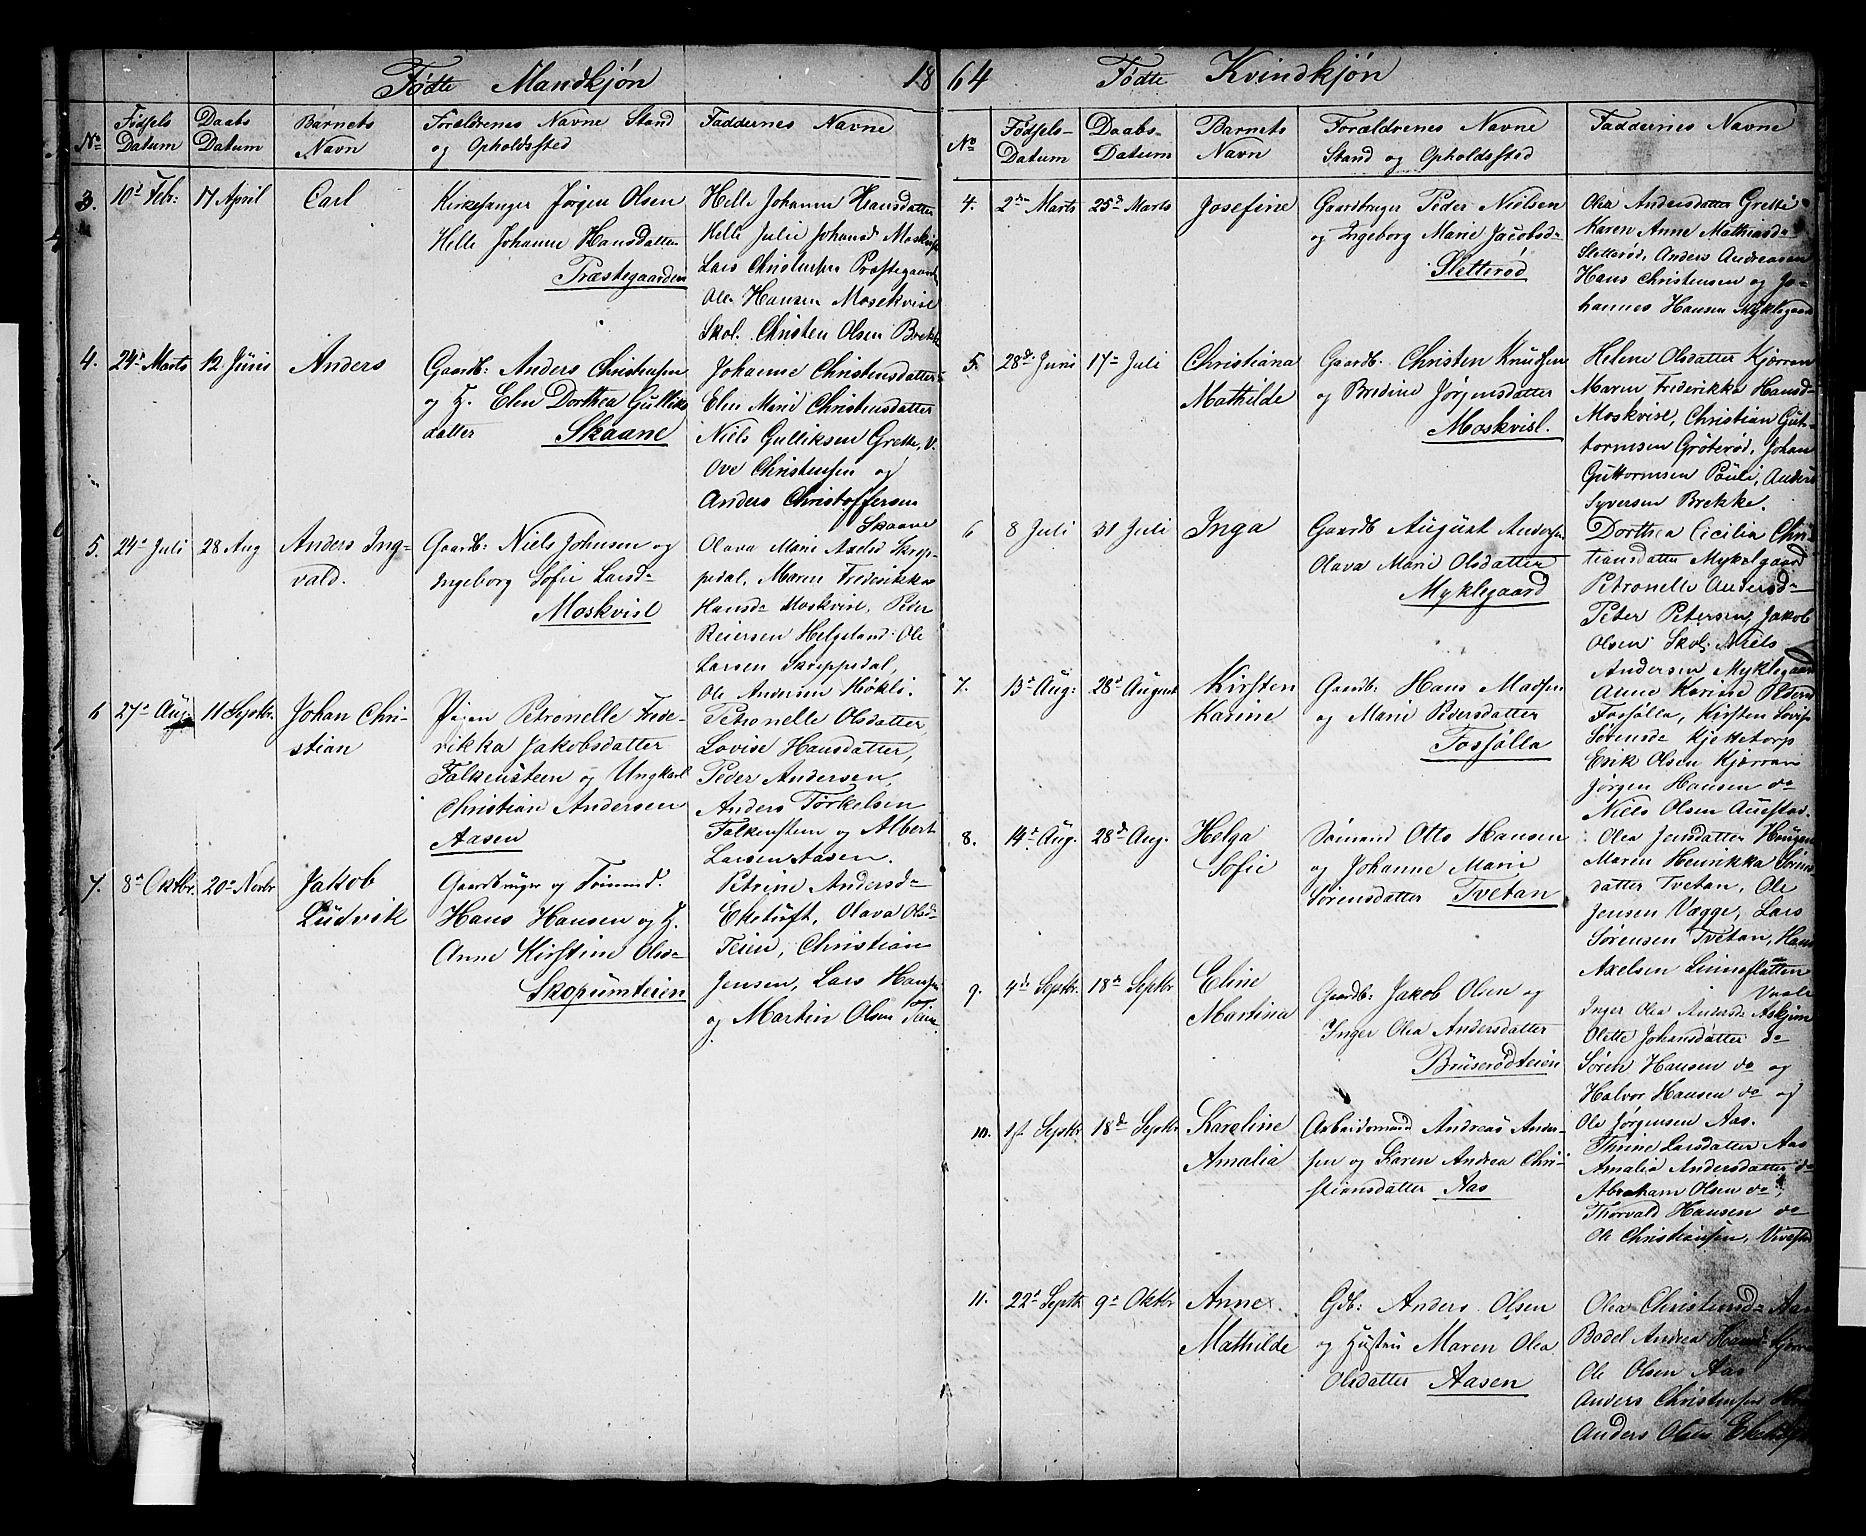 Fødte Mandkjøn 18
No
Fødsels Datum
Daabs Datum
Barnets Navn
Forældrenes Navne Stand og Opholdssted
Faddernes Navne
3. 10d Feb: 17 April Carl
Kirkesanger Jørgen Olsen
Helle Johanne Hansdatter
Præstegaarden
Helle Johanne Hansdatter
Helle Julie Johansd Moskvisl
Lars Christensen Præstegaard
Ole Hansen Mosekvisl
Skol. Christen Olsen Brekke
4. 24d Marts 12 Juni Anders
Gaardb: Anders Christensen
og H. Elen Dorthea Gulliks
datter Skaane
Johanne Christensdatter
Elen Marie Christensdatter
Niels Gulliksen Grette, V.
Ove Christensen og
Anders Christoffersen
Skaane
5. 24d Juli 28 Aug Anders Ing-
vald.
Gaardb: Niels Johnsen og
Ingeborg Sofie Larsd-
Moskvisl
Olava Marie Axelsd Skrep-
pedal, Maren Frederikke
Hansd- Moskvisl, Peder
Reiersen Helgeland, Ole
Larsen Skreppedal,
Ole Andersen Høkli.
6 27d Aug 11 Septbr. Johan Chri-
stian
Pigen Petronelle Frede-
rikka Jakobsdatter
Falkensteen og Ungkarl
Christian Andersen
Aasen
Petronelle Olsdatter
Lovise Hansdatter,
Peder Andersen,
Anders Torkelsen
Falkensteen og Albert
Larsen Aasen.
7. 8d Oktbr. 20d Novbr Jakob
Ludvik
Gaardbruger og Tømmd.
Hans Hansen og H.
Anne Kirstine Olsd-
Skopumteien
Petrine Andersd-
Eketuft, Olava Olsd-
Teien, Christian
Jensen, Lars Hansen
og Martin Olsen Teien
64 Fødte Kvindkjøn
No
Fødsels-Datum
Daabs-Datum
Barnets Navn
Forældrenes Navne Stand og Opholdssted
Faddernes Navne
4. 2den Marts 25d Marts Josefine
Gaardbruger Peder Nielsen
og Ingeborg Marie Jacobsd-
Sletterød
Olea Andersdatter Grette
Karen Anne Mathiasd-
Sletterød, Anders Andreasen
Hans Christensen og Jo-
hannes Hansen Myklegaard
5. 28d Juni 17d Juli Christiana
Mathilde
Gaardb. Christen Knudsen
og Bredine Jørgensdatter
Moskvisl.
Helene Olsdatter Kjærran
Maren Frederikka Hansd-
Moskvisl, Christian Gut-
tormsen Grøterød, Johan
Guttormsen Pauli, Anders
Syversen Brekke.
6 8 Juli 31 Juli Inga
Gaardb August Andersen
Olava Marie Olsdatter
Myklegaard
Dorthea Cicilia Chri-
stiansdatter Myklegaard
Petronelle Andersd-
Peter Petersen, Jakob
Olsen Skol. Niels
Andersen Myklegaard
7. 13d Aug: 28d August Kirsten
Karine
Gaardb: Hans Madsen
og Marie Pedersdatter
Fosfjølla
Anne Karine Pedersd
Fosfjølla, Kirsten Lovise
Sørensd- Kjøttorp
Erik Olsen Kjærran
Jørgen Hansen do
Niels Olsen Augstad.
8. 14d Aug. 28d Aug. Helga
Sofie
Sømand Otto Hansen
og Johanne Marie
Sørensdatter Tvetan
Olea Jensdatter Haugen
Maren Henrikka Sørens
datter Tvetan, Ole
Jensen Vægge, Lars
Sørensen Tvetan, Hans
Axelsen Linneflatten
9. 4d Septbr. 18d Septbr Eline
Martina
Gaardb: Jakob Olsen og
Inger Olea Andersdatter
Bruserødteien
Inger Olea Andersd- Askjem
Olette Johansdatter do
Søren Hansen do og
Halvor Hansen do og
Ole Jørgensen Aas.
10. 1st Septbr 18d Septbr Karoline
Amalia
Arbeidsmand Andreas Ander-
sen og Karen Andrea Chri-
stiansdatter Aas
Thrine Larsdatter Aas
Amalia Andersdatter do
Abraham Olsen do,
Thorvald Hansen do
Ole Christiansen, Vivestad
11. 22d Septbr 9d Oktbr Anne
Mathilde
Gdb: Anders Olsen
og Hustru Maren Olea
Olsdatter Aasen
Olea Christensd- Aas
Bodel Andrea Hansd-
Ole Olsen Aas
Anders Christensen
Anders Olsen